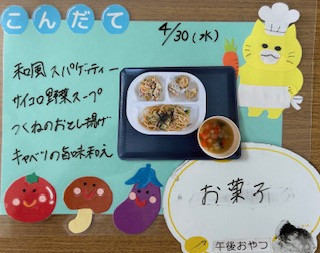 こんだて
4/30(水)
和風スパゲッティー
サイコロ野菜スープ
つくねのおとし揚げ
キャベツの旨味和え
お菓子
午後おやつ